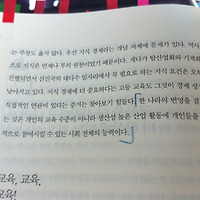 는 주장도 옳지 않다. 우선 지식 경제라는 개념 자체에 문제가 있다. 역사
으로 지식은 언제나 부의 원천이었기 때문이다. 게다가 탈산업화와 기계화
진행되면서 선진국의 대다수 일자리에서 꼭 필요로 하는 지식 요건은 오히
낮아지고 있다. 지식 경제에 더 중요하다는 고등 교육도 그것이 경제 성
직접적인 연관이 있다는 증거는 찾아보기 힘들다. 한 나라의 번영을 결
는 것은 개인의 교육 수준이 아니라 생산성 높은 산업 활동에 개인들을
적으로 참여시킬 수 있는 사회 전체의 능력이다.
교육, 교육,
교육!